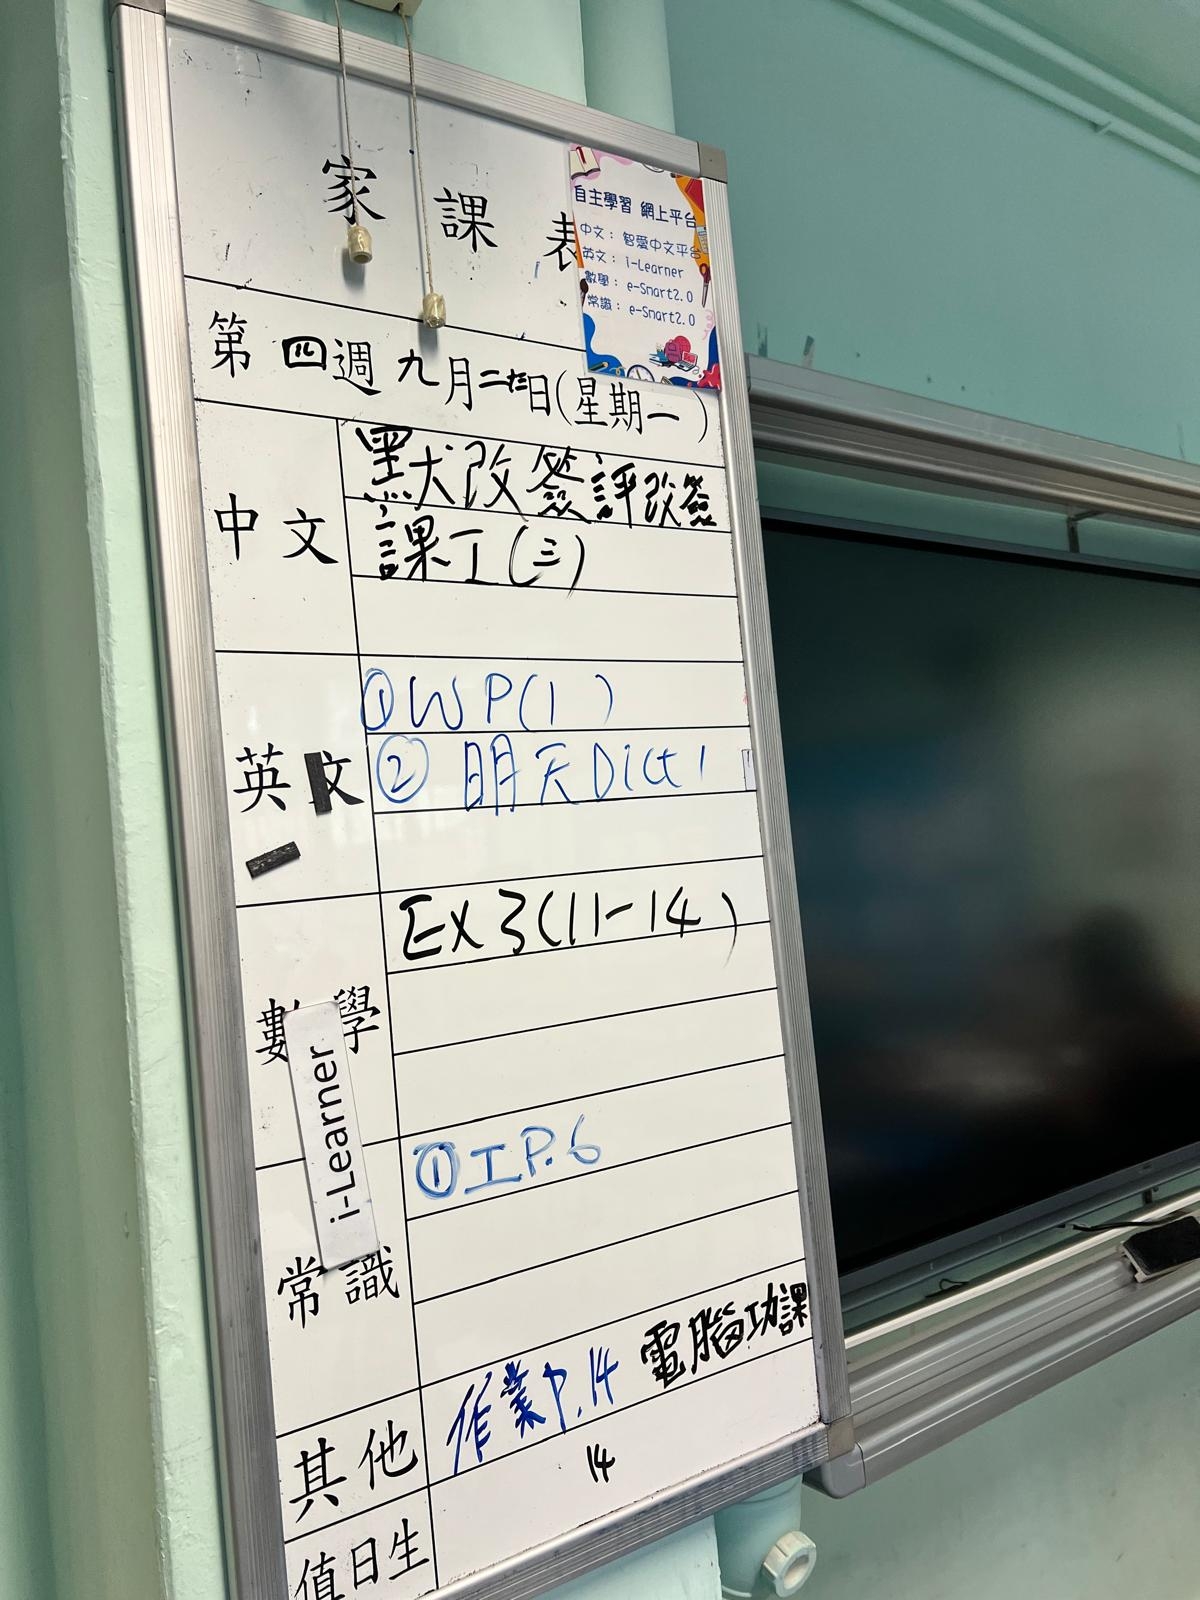 家課表
自主學習 網上平台
中文：智愛中文平台
英文：i-Learner
數學：e-Smart2.0
常識：e-Smart2.0
第四週 九月二十三日(星期一)
中文
默改簽 評改簽
課工(三)
英文
①WP(1)
②明天Dict 1
數學
Ex 3(11-14)
i-Learner
常識
①工P.6
其他
作業P.14 電腦功課
值日生
14